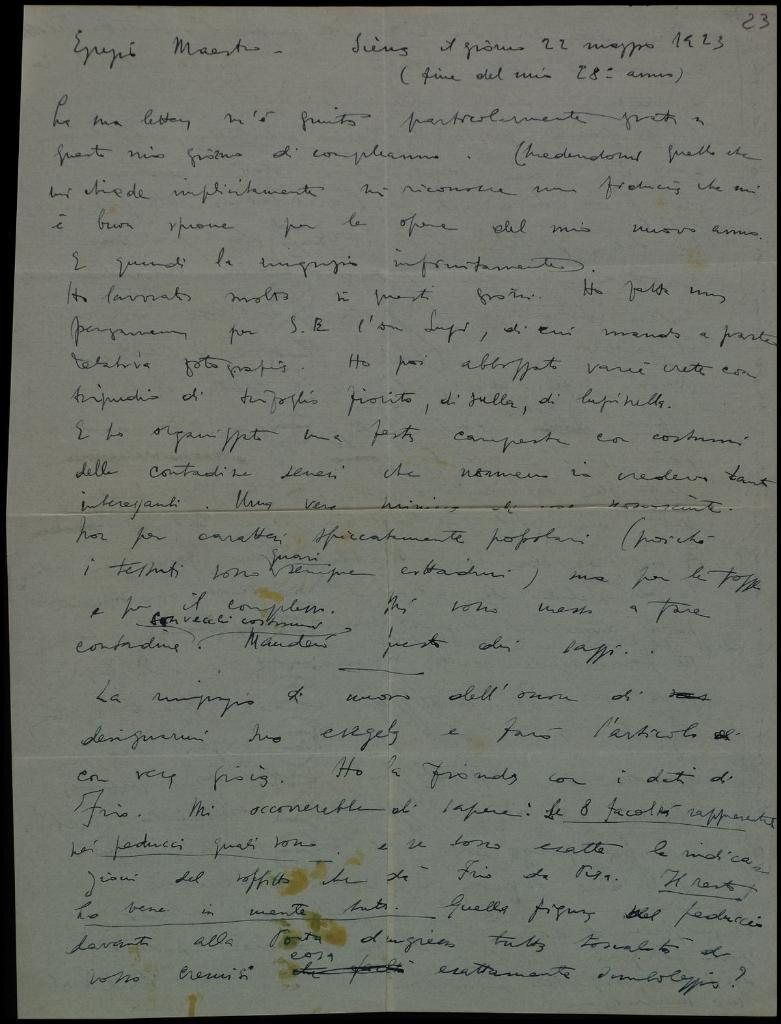 23
Egregio Maestro - Siena il giorno 22 maggio 1923
(fine del mio 28º anno)
La sua lettera m'è giunta particolarmente grata in
questo mio giorno di compleanno. Chiedendomi quello che
mi chiede implicitamente mi riconosce una fiducia che mi
è buon sprone per le opere del mio nuovo anno.
E quindi la ringrazio infinitamente.
Ho lavorato molto in questi giorni. Ho fatto una
pergamena per S.E. l'on , di cui mando a parte
relativa fotografia. Ho poi abbozzato varie crete con
tripudio di trifoglio fiorito, di sulla, di lupinella.
E ho organizzato una festa campestre con costumi
delle contadine senesi che nemmeno io credevo tanto
interessanti. Una vera miniera
Non per caratteri spiccatamente popolari (poiché
i tessuti sono quasi sempre cittadini) ma per le fogge
e per il complesso. Mi sono messo a fare
contadine con vecchi costumi. Manderò presto dei saggi.
La ringrazio di nuovo dell'onore di
designarmi suo esegeta e farò l'articolo
con vera gioia. Ho la Fronda con i dati di
Frio. Mi occorrerebbe di sapere: Se 8 facoltà rappresentate
nei peducci quali sono. e se sono esatte le indica=
zioni del soffitto che dà Frio da Pisa. Il resto
ho bene in mente tutto. Quella figura del peduccio
davanti alla Porta d'ingresso tutta di
rosso cremisi cosa esattamente simboleggia?